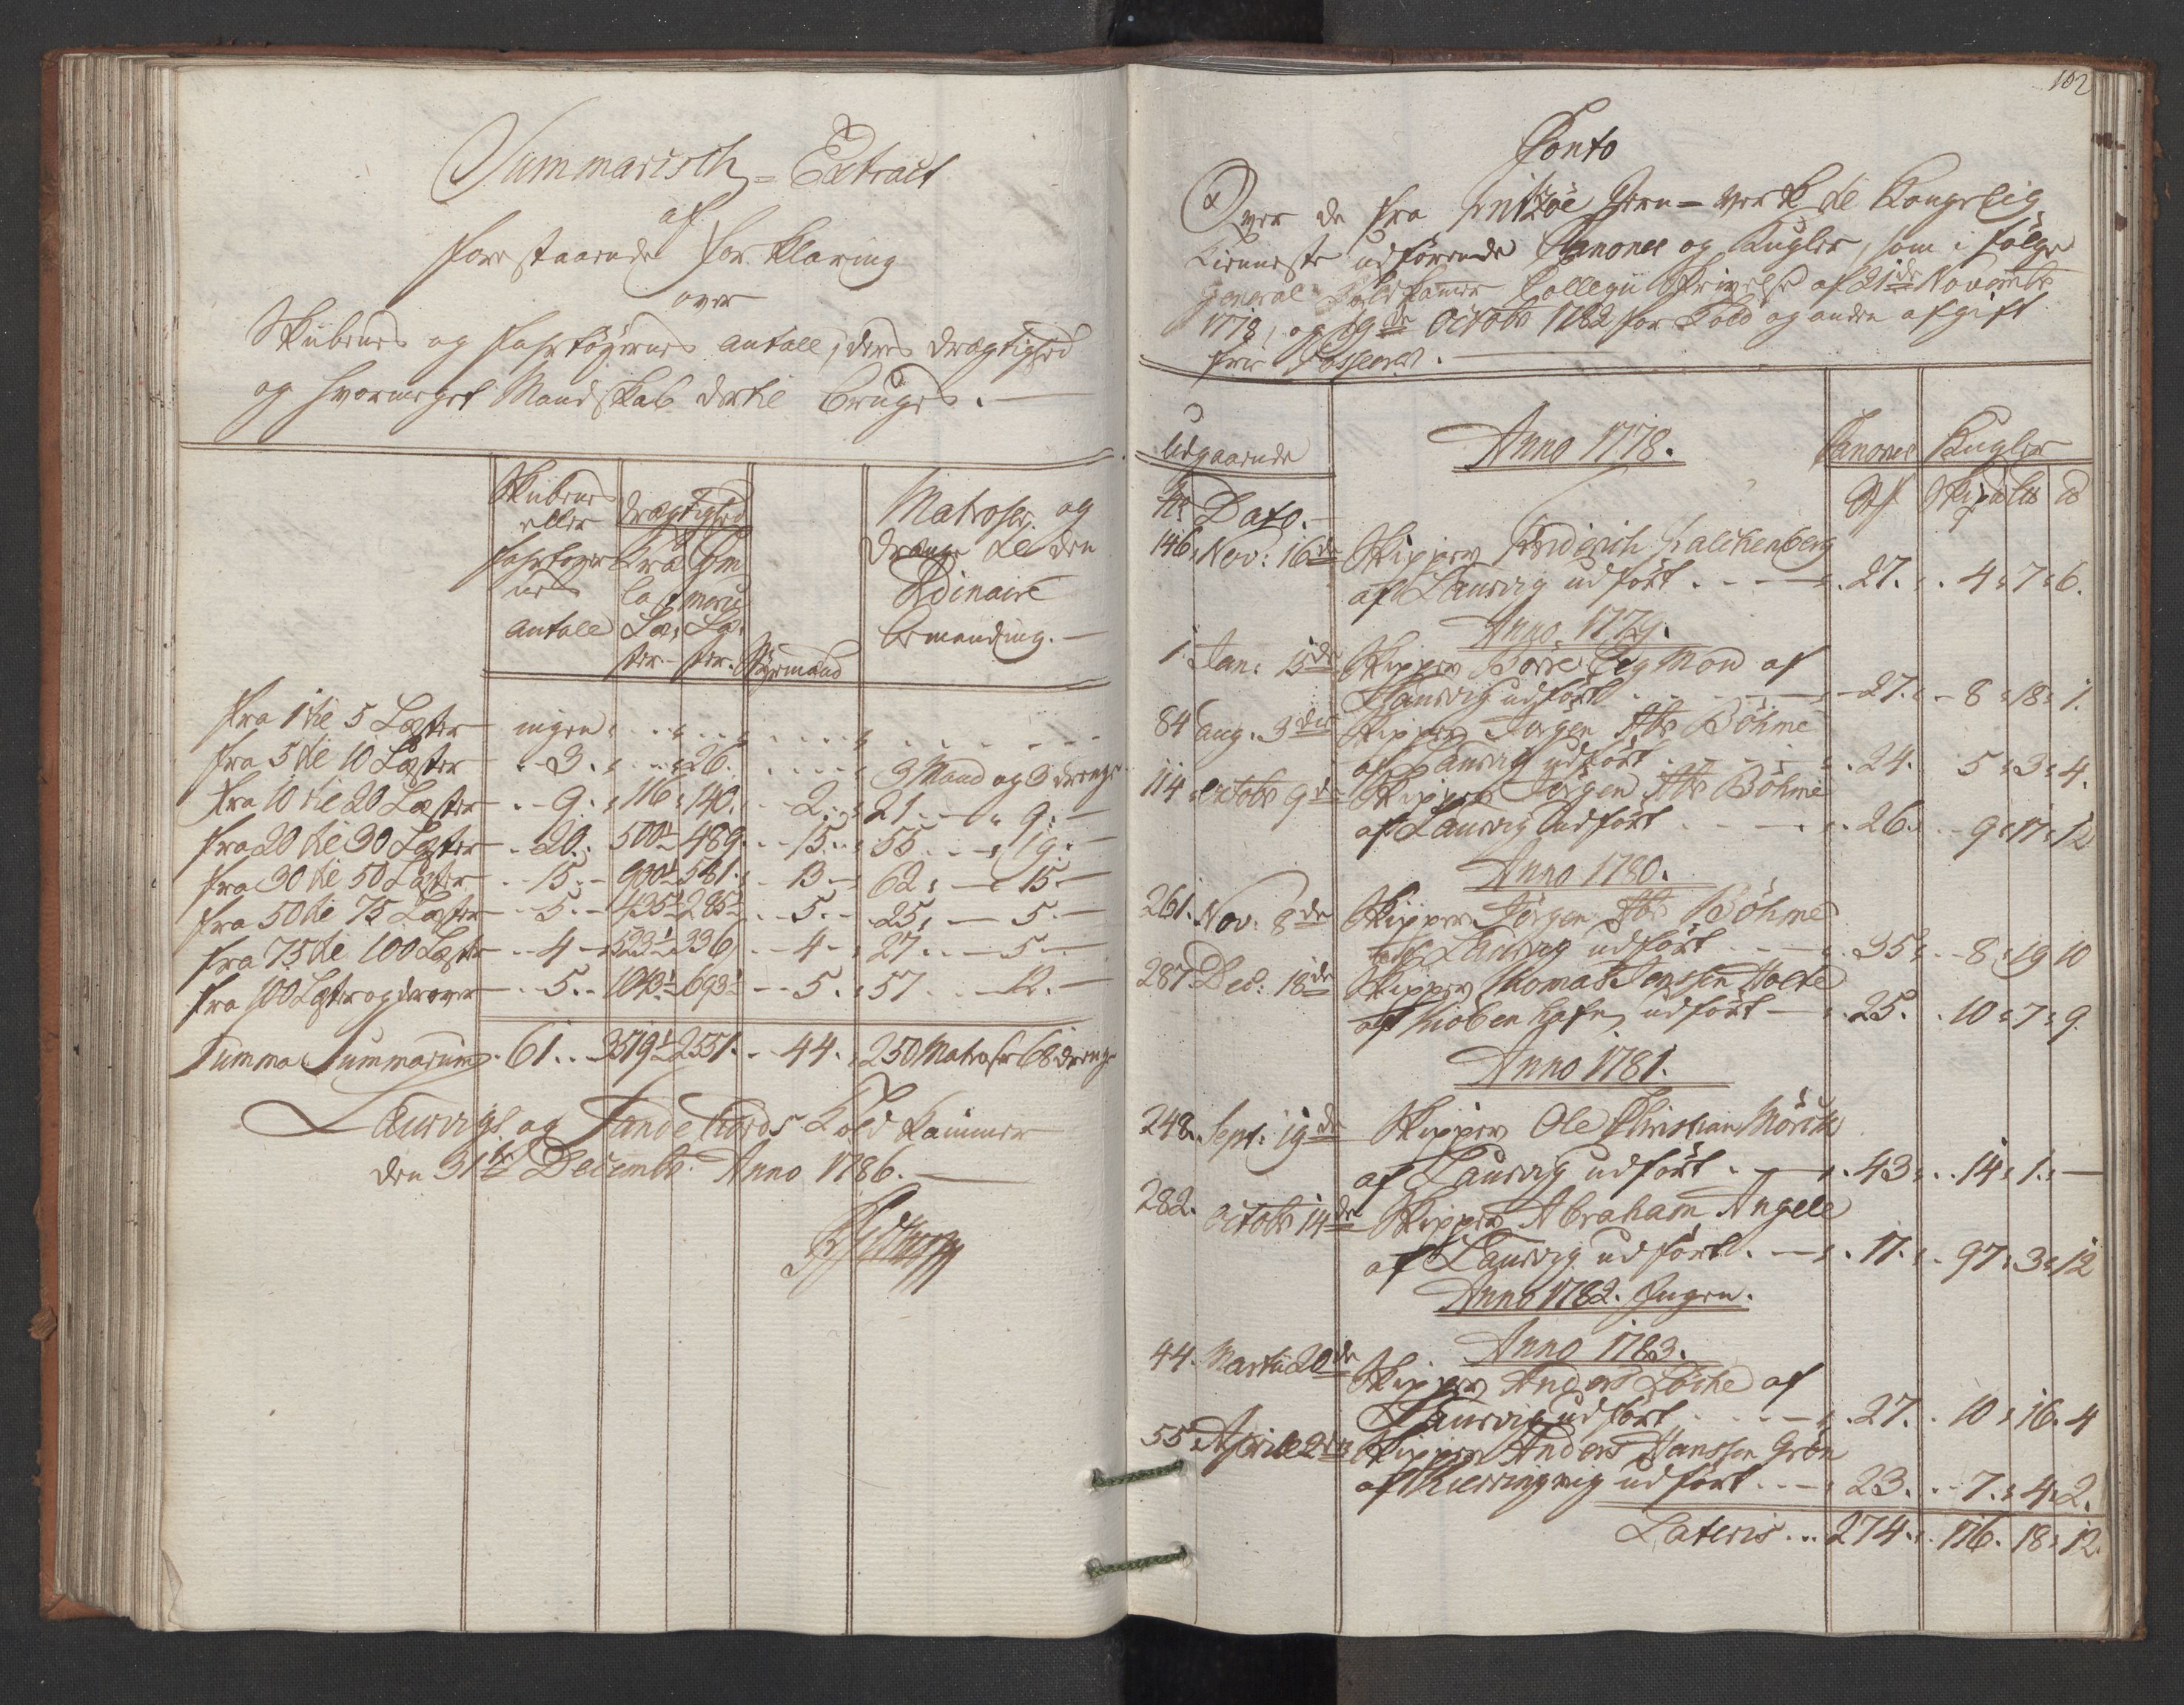 Summarisch = Extract
af
forestaaende Forklaring
over
Skibenes og Fahrtøyernes Antall, deres Drægtighed
og hvormeget Mandskab dertil bruges.
Skibenes
eller
Fahrtøyer
nes
Antall
Drægtighed
Læ-
ster
Com
merce
Læ-
ster
Styrmænd
Matroser og
Drænge til den
Ordinaire
bemanding.
fra 1 til 5 Læster ingen
fra 5 til 10 Læster 3. 26. 3 Mand og 3 drenge
fra 10 til 20 Læster 9. 116. 140. 2. 21 9.
fra 20 til 30 Læster 20. 500½ 489. 15. 55 19.
fra 30 til 50 Læster 15. 581. 13 62. 15
fra 50 til 75 Læster 5. 435½ 285½ 5. 25. 5.
fra 75 til 100 Læster 4 523½ 336 4 27. 5
fra 100 Læster og derover 5. 1043½ 693½ 5. 57 12.
Summa Summarum 61. 3519½ 2551. 44. 250 Matroser 68 drenge
Laurvigs og Sandefiords Told Kammer
den 31te Decembr. Anno 1786.
102
Conto
Over de fra Fritzöe Jern-Verk til Kongelig
Tienneste udförende Canoner og Kugler, som i fölge
General Toldkamer Collegii Skrivelse af 21de Novembr
1778, og 19de Octobr 1782 for Told og anden afgift
frie Passerer.
Udgaaende
Anno 1778.
Canoner Kugler
No Dato. St. Skipd Lb lb
146. Nov: 16de Skipper Friderich Falchenberg
af Laurvig udfört 27. 4 : 7 : 6.
Anno 1779.
1. Jan: 15de Skipper Börre Sigmon af
Laurvig udfört 27. 8 : 18 : 1.
84 Aug. 3die Skipper Jörgen Böhme
af Laurvig udfört 24. 5 : 3 : 4.
114 Octobr 9de Skipper Jörgen Böhme
af Laurvig udfört 26. 9 : 17 : 12
Anno 1780.
261. Nov: 8de Skipper Jörgen Böhme
af Laurvig udfört 35 : 8 : 19 10
287. Dec: 18de Skipper Thomas Jenssen Holte
af Kiöbenhafn udfört 25. 10 : 7 : 9.
Anno 1781.
248. Sept: 19de Skipper Ole Christian Mörch
af Laurvig udfört 43 : 14 : 1. —
282. Octobr 14de Skipper Abraham Angell
af Laurvig udfört 17. 97 : 3 : 12
Anno 1782. Ingen.
Anno 1783.
44. Martii 20de Skipper Anders Löche af
Laurvig udfört 27. 10 : 16. 4
55. April 2den Skipper Anders Hanssen Grön
af Kierringvig udfört 23. 7. : 4 : 2.
Lateris 274. 176. 18 : 12.